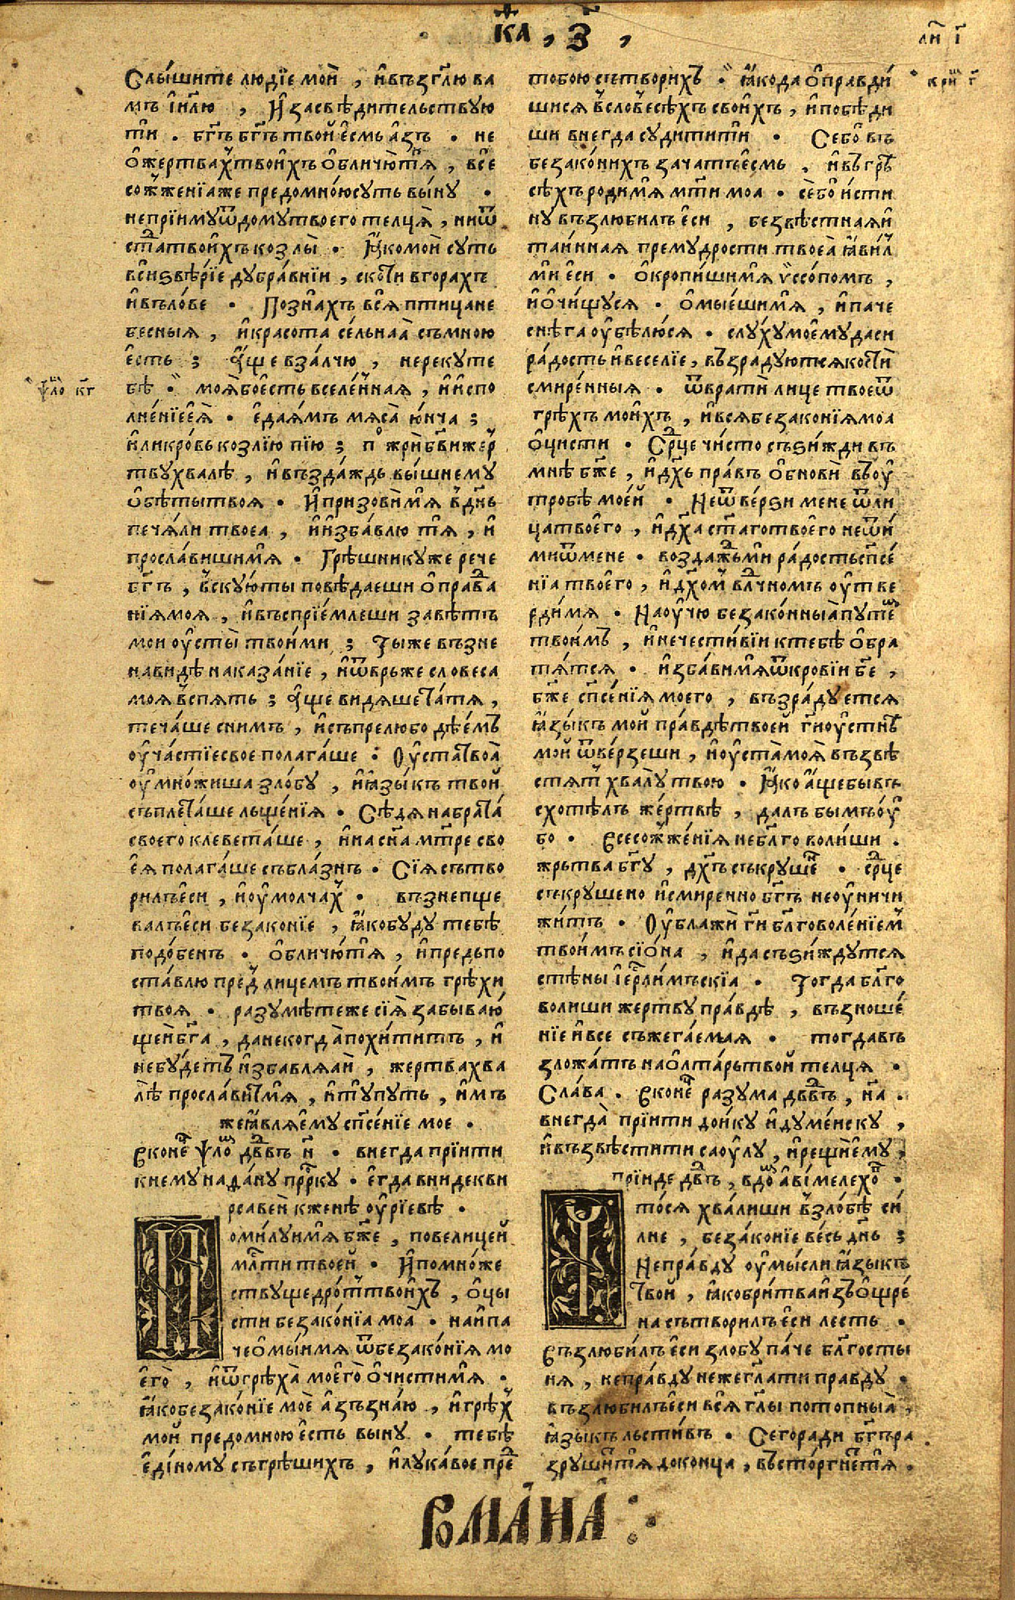 к҃а , з҃ ,
Слы́шите лю́дїе мои̑ , и҆въз҃глю ва
мъ і҆и҃лю , И҆засвѣдительствую
ти . бг҃ъ бг҃ъ твой є҆смь а҆зъ . не
ѡ҆жертвах̾твои́хъ ѡ҆бличю́тѧ , все
соже́нїа же предомно́ю суть вы́ну .
непрїимуѿдому твоего телцѧ , ниѿ
ста́твои́хъ козлы̀ . Ꙗ҆комои̑ суть
вси ѕвѣ́рїе дубра́внїи , ско́ти вгорахъ
и҆въло́ве . Позна́хъ всѧ птица не
бесныѧ , и҆красота се́льнаа съмною
є҆сть ; А҆́ще вза́лчю , нерекуте
бѣ . моѧ̀бое҆сть вселе́ннаѧ , и҆и҆спо
лне́нїеєѧ̀ . є҆даꙗ҆́мъ мѧса̀ ю҆́нча ;
и҆ли кро́вь козлїю пїю ; пожри̑ бг҃ови жер
тву хвалѣ , и҆възда́ждь вы́шнему
ѡ҆бѣ́ты твоѧ . И҆призови̑ мѧ вднь
печа́ли твоеа , и҆и҆зба́влю тѧ , и҆
просла́виши мѧ . Грѣ́шнику же рече
бг҃ъ , вску́ю ты повѣ́даеши ѡ҆права
нїѧ моѧ , и҆въспрїе́млеши завѣтъ
мои ѹ҆сты̀ твои́ми ; Ты́ же възне
навидѣ наказа́нїе , и҆ѿвръже словеса
моѧ вспѧть ; А҆́ще видѧше та́тѧ ,
теча́ше снимъ , и҆съпрелюбо дѣе́мъ
ѹ҆ча́стїе свое полага́ше : Ѹ҆ста̀ твоѧ̀
ѹ҆мно́жиша зло́бу , и҆ѧ҆зы́къ твой
съплета́ше льще́нїѧ . Сѣ́дѧ на бра́та
своего клевета́ше , и҆на сн҃а мт҃ре сво
є҆ѧ полага́ше събла́знъ . Сїѧ сътво
рилъ є҆си , и҆ѹ҆молча́х . възнепще
валъ є҆си безаконїе , ꙗ҆кобуду тебѣ
подо́бенъ . ѡ҆бличю́тѧ , и҆предъпо
ста́влю пред лицемъ твои́мъ грѣхи
твоѧ . разумѣ́те же сїѧ̀ забываю́
щеи бг҃а , да некогда̀ похи́титъ , и҆
не бу́детъ и҆збавлѧай , жертва хва
лѣ̀ просла́витмѧ , и҆тупуть , и҆мъ
же ꙗ҆влѧе́му спс҃е́нїе мое .
Вконе́ц ѱало́м дв҃дъ н҃ . внегда прїити
кнему наѳа́ну прр҃ку . є҆гда вниде кви
рсавеи кженѣ ѹ҆рїевѣ .
Помилуимѧ бж҃е , повелицей
мл҃ти твоей . И҆помно́же
ству щедро́ттвои́хъ , ѡ҆цы
сти безако́нїа моа . наи́па
че ѡ҆мы́имѧ ѿбезако́нїѧ мо
е҆го̀ , и҆ѿгрѣха̀ мое҆го̀ ѡ҆чистимѧ .
ꙗ҆кобезако́нїе моѐ а҆зъзна́ю , и҆грѣ́х
мой предомно́ю є҆сть вы́ну . тебѣ
є҆ді́ному съгрѣши́хъ , и҆лука́вое пре
тобою сътвори́хъ . ꙗ҆кода ѡ҆правди́
шисѧ всловесѣ́хъ свои́хъ , и҆побѣ́ди
ши внегда судитити . Себо въ
безако́нихъ зача́тъ є҆смь , и҆въ грѣ
сѣ́хъ родимѧ мт҃и моа . се́бо и҆сти
ну възлюбилъ є҆си , безвѣ́стнаѧ и҆
та́иннаѧ премудрости твоеѧ̀ ꙗ҆вил
ми є҆си . Ѡ҆кропи́шимѧ ѵ҆ссо́помъ ,
и҆ѡ҆чи́щусѧ . ѡ҆мые́шимѧ , и҆паче
снѣ́га ѹ҆бѣлю́сѧ . слу́ху мое́му даси
ра́дость и҆веселїе , възра́дуютсѧ ко́сти
смире́нныѧ . ѿврати̑ лице твое ѿ
грѣ́хъ мои́хъ , и҆всѧ безако́нїѧ моа
ѡ҆цисти . Ср҃це чи́сто съзи́жди въ
мнѣ бж҃е , и҆дх҃ъ пра́въ ѡ҆бнови̑ въѹ҆
тробѣ мое́й . Не ѿве́рзи мене ѿли
ца твое́го , и҆дх҃а ст҃аго твоего неѿи́
миѿмене . возда́жьми ра́дость спс҃е
нїа твое́го , и҆дх҃омъ вл҃чномъ ѹ҆тве
рди́мѧ . Наѹ҆чю безако́нныѧ путе́м
твои́мъ , и҆нечести́вїи ктебѣ ѡ҆бра
тѧ́тсѧ . и҆зба́ви мѧ ѿкровїи бж҃е ,
бж҃е спс҃е́нїѧ моего , възра́дуетсѧ
ꙗ҆зы́къ мой пра́вдѣ твоей ги҃ ѹ҆стнѣ
мои̑ ѿве́рзеши , и҆ѹ҆ста̀ моѧ̀ възвѣ
стѧ́т хвалу̀ твою . Ꙗ҆ко а҆ще бы въ
схотѣлъ жертвѣ , далъ бымъ ѹ҆
бо . Всесожже́нїѧ небл҃го воли́ши .
жрътва бг҃у , дх҃ъ съкруше́н . ср҃це
съкрушено и҆смиренно бг҃ъ неѹ҆ничи
жи́тъ . Ѹ҆блажи̑ ги҃ бл҃говоле́нїем
твои́мъ сїѡ́на , и҆да съзи́ждутсѧ
стѣ́ны і҆ер҃ли́мъскїа . Тогда бл҃го
волиши жертву пра́вдѣ , възноше́
нїе и҆все съжега́емаѧ . тогда въ
зложа́тъ на ѡ҆лта́рь твой телца .
Сла́ва . Вконе́ц разума дв҃дъ , н҃а .
внегда̀ прїити дои́ку и҆думе́иску ,
и҆възвѣсти́ти саѹ́лу , и҆рещи̑ є҆му ,
прїиде дв҃дъ , вдо́м а҆вимелехо́в .
Что́сѧ хва́лиши взло́бѣ си́
лне , безако́нїе ве́сь днь ;
Непра́вду ѹ҆мы́сли ꙗ҆зы́къ
твой , ꙗ҆ко бри́тва и҆зъѡ҆щре́
на сътвори́лъ є҆си ле́сть .
Възлюби́лъ є҆си зло́бу па́че бл҃госты
нѧ , непра́вду не́же гл҃ати пра́вду .
възлюби́лъ є҆си всѧ гл҃ы пото́пныѧ ,
ꙗ҆зы́къ льсти́въ . Сего́ради бг҃ъ ра
зруши́т тѧ доконца , въсто́ргнет тѧ .
ѱало́ к҃г